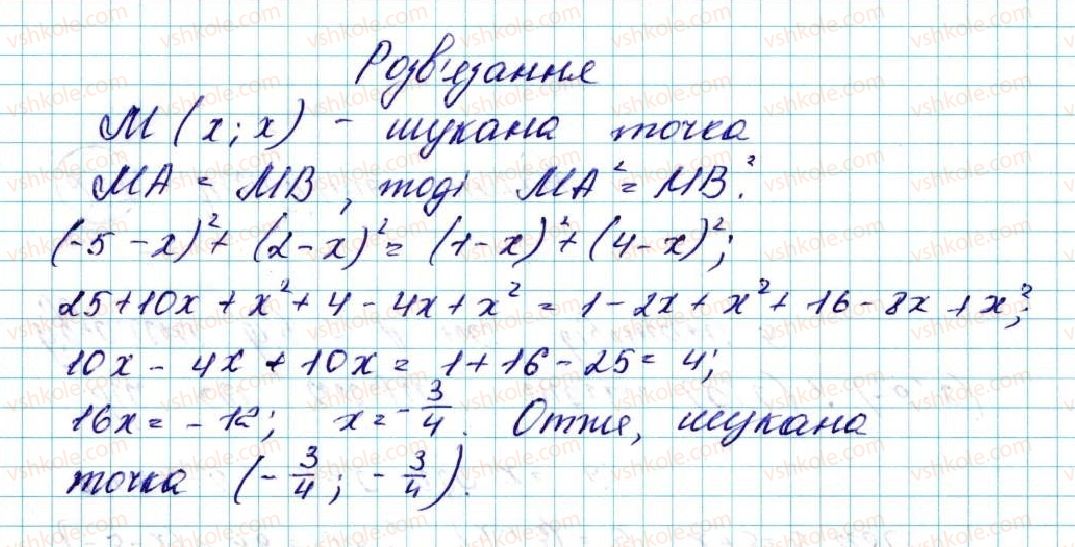 Розв'язання
M (x; x) - шукана точка
MA = MB, тоді MA² = MB².
(-5 - x)² + (2 - x)² = (1 - x)² + (4 - x)²;
25 + 10x + x² + 4 - 4x + x² = 1 - 2x + x² + 16 - 8x + x²;
10x - 4x + 10x = 1 + 16 - 25 = 4;
16x = -12; x = -3/4. Отже, шукана
точка (-3/4; -3/4).